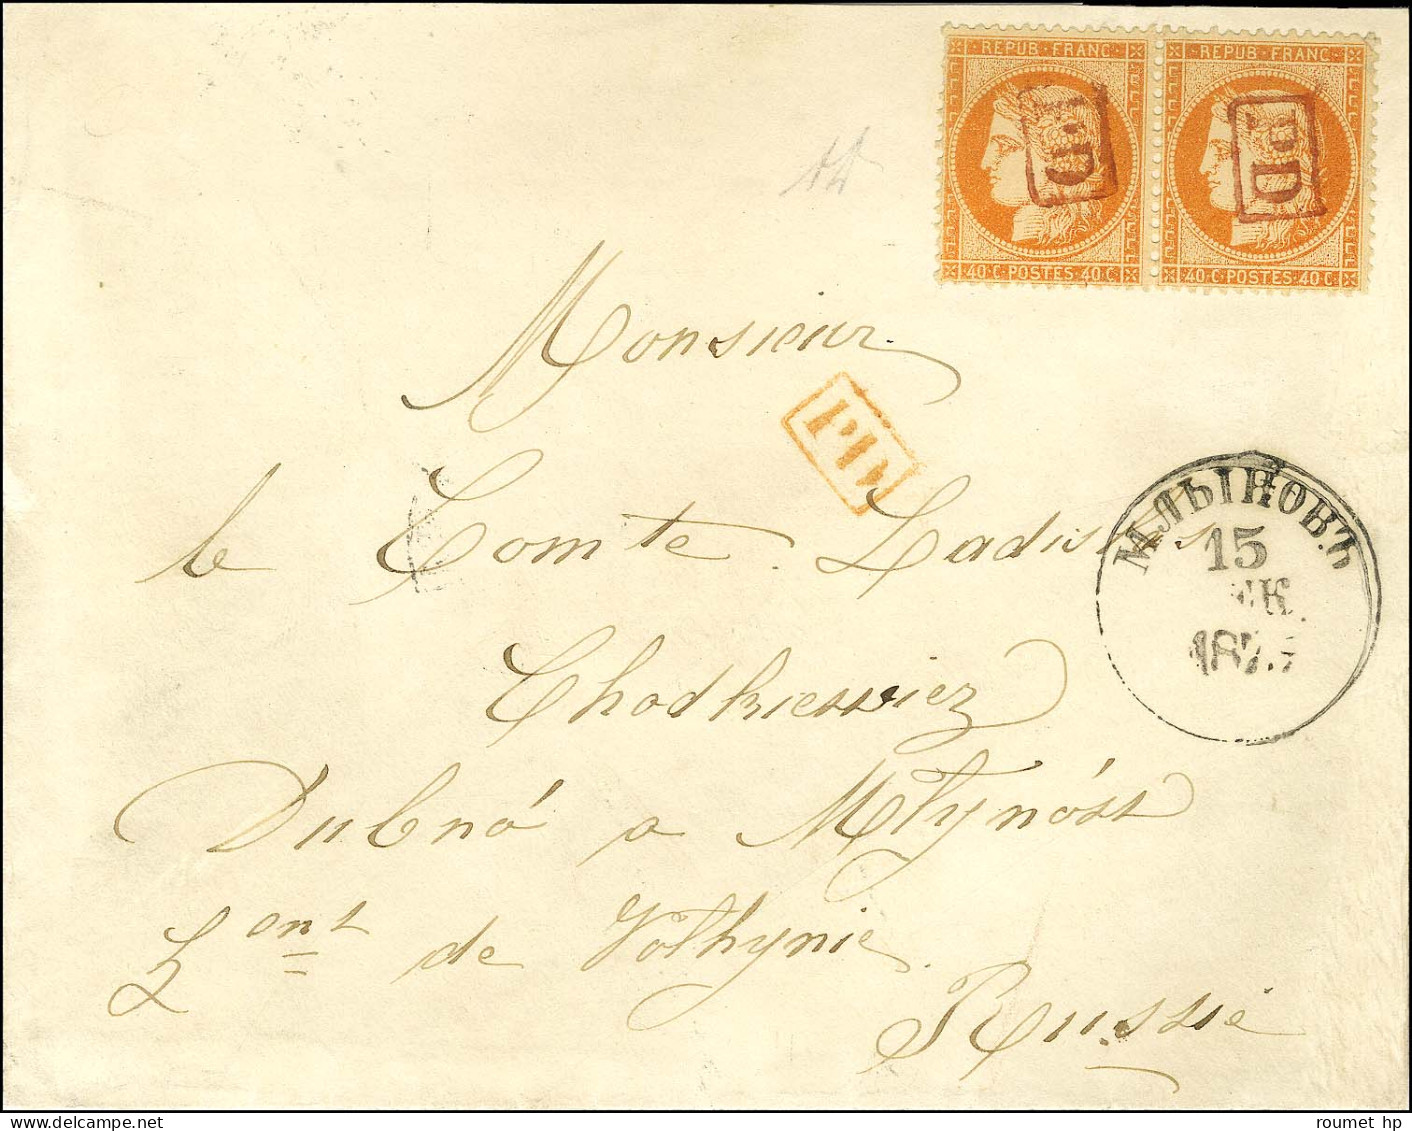 REPUB · FRANC REPUB · FRANC
PD PD
40·C·POSTES·40·C 40·C·POSTES·40·C
Monsieur
PD
le Comte Ladislas
МЛЫНОВЪ
15
ЕК.
187
Chodkiewicz
Dubnó a Młynóst
de Volhynie
Russie
roumet hp